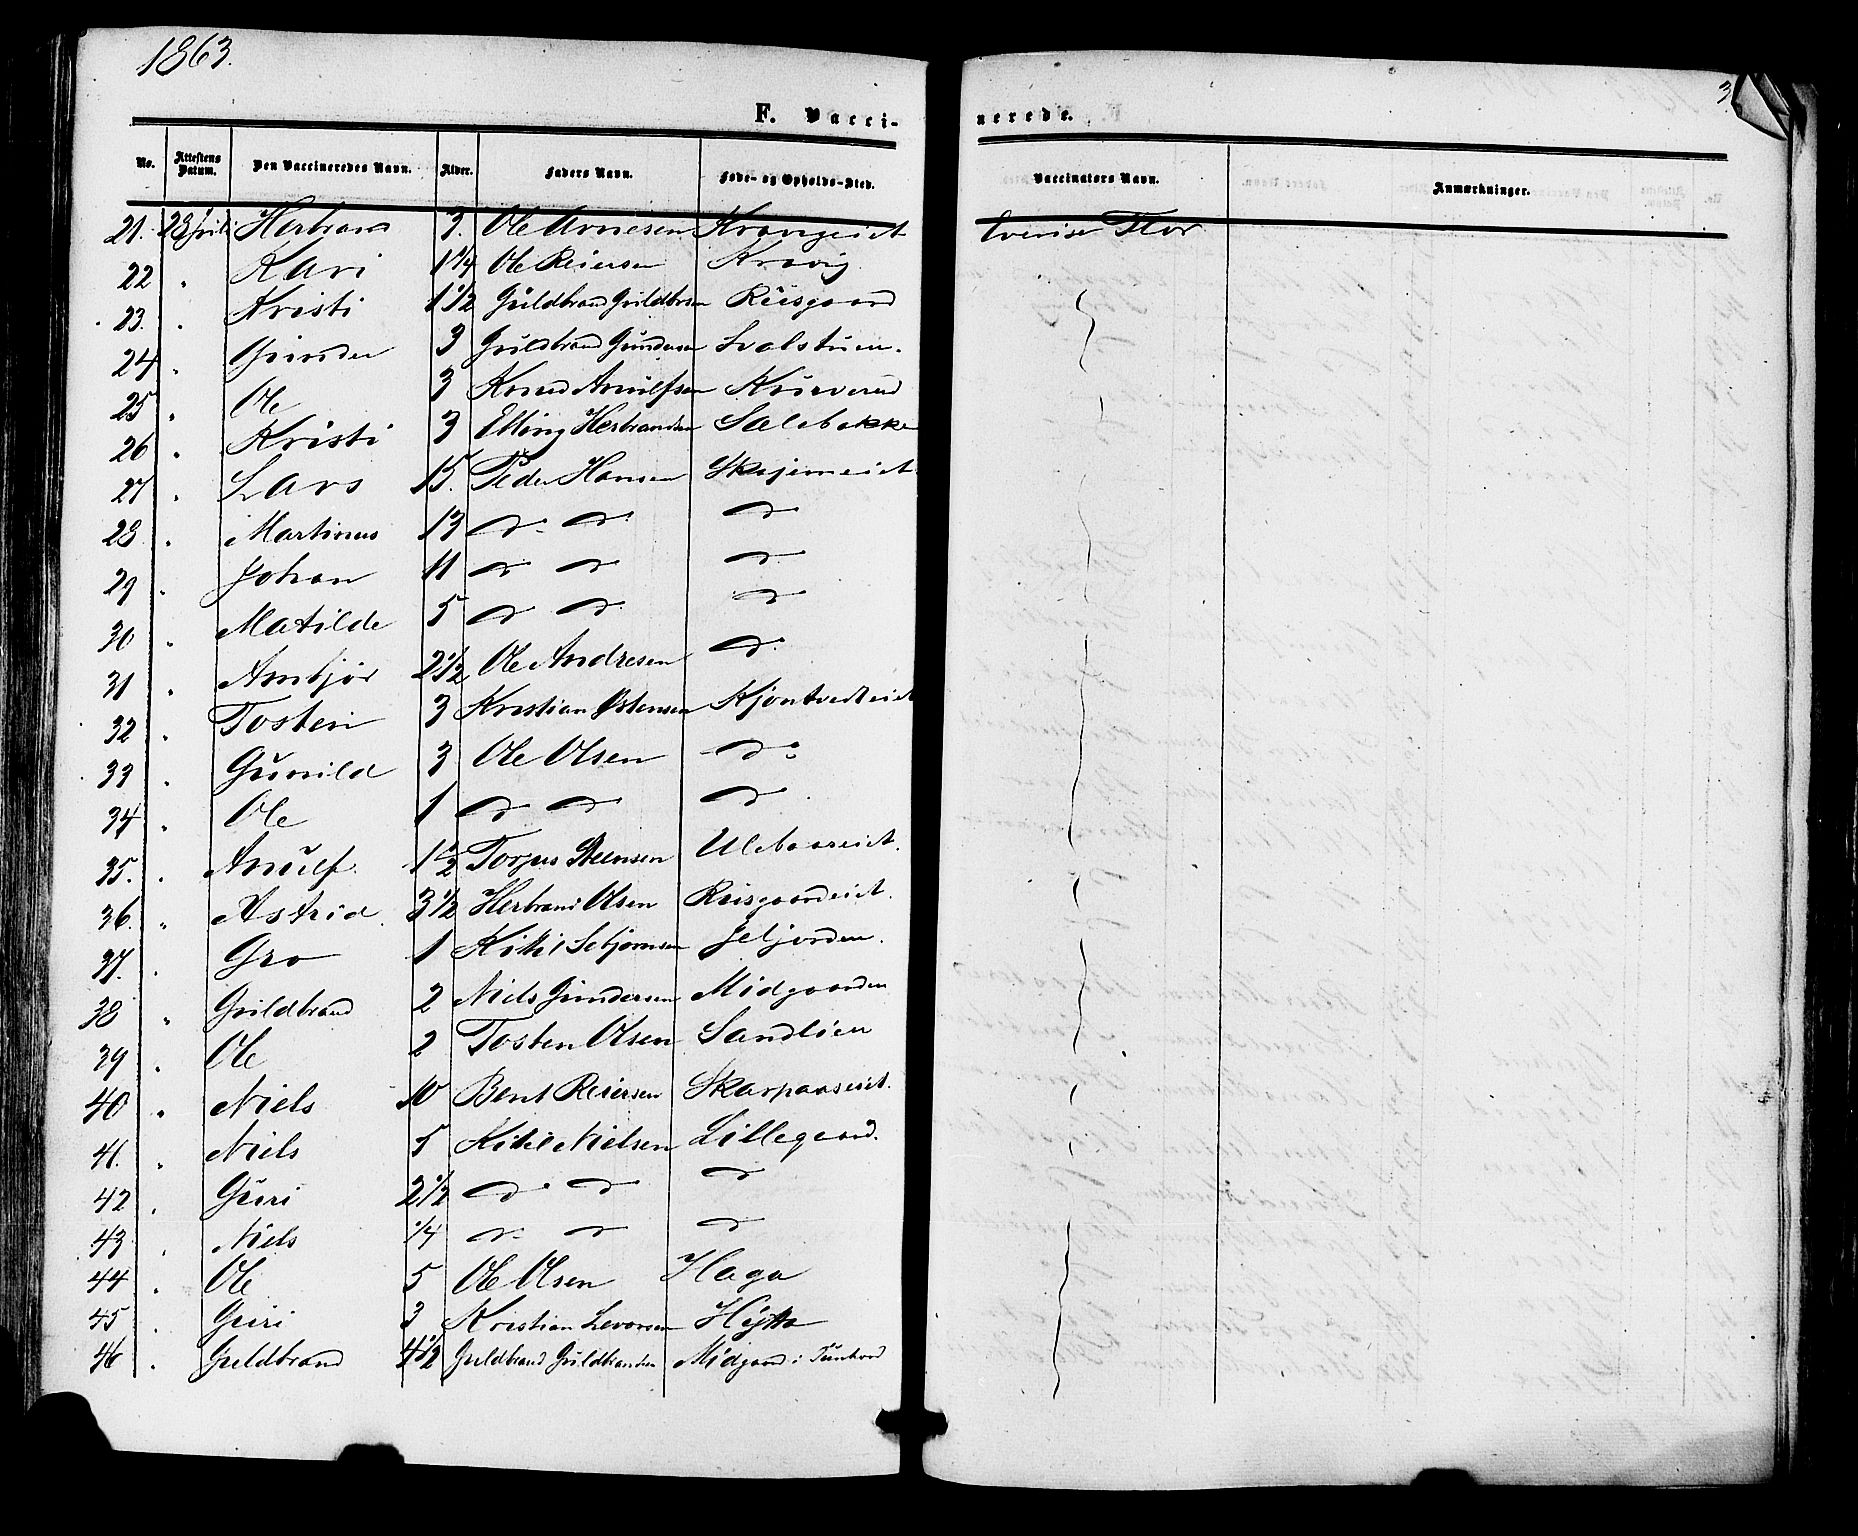 1863.
3
F. Vacci-
nerede.
No. Attestens Datum. Den Vaccineredes Navn. Alder. Faders Navn. Føde- og Opholds-Sted. Vaccinators Navn. Anmærkninger.
21. 23 Herbrand 3. Ole Arnesen Kravigeiet Flor
22 " Kari 1 1/4 Ole Reiersen Kravig
23. " Kristi 1 1/2 Guldbrand Guldbrsen Riisgaard
24 " Gunder 3 Guldbrand Gundersen
25 " Ole 3 Knud Arnulfsen
26 " Kristi 3 Elling Herbrandsen
27 " Lars 15. Peder Hansen Skjemeiet
28 " Martinus 13 do do do
29 " Johan 11 do do do
30 " Matilde 5 do do do
31 " Ambjør 2 1/2 Ole Andresen do
32 " Tosten 3 Kristian Østensen Kjøntvedteiet
33 " Gunild 3 Ole Olsen do
34 " Ole 1 do do do
35. " Arnulf. 1 1/2 Torjus Steensen Ulebaareiet.
36. " Astrid 3 1/2 Herbrand Olsen Riisgaardeiet.
37. " Gro 1 Kittil Sebjørnsen
38 " Guldbrand 2 Niels Gundersen Midgaarden
39 " Ole 2 Tosten Olsen
40 " Niels 10 Bent Reiersen Skarpaaseiet.
41. " Niels 5 Kittil Nielsen Lillegaard.
42 " Guri 2 1/2 do do do
43 " Niels 1/4 do do do
44 " Ole 5 Ole Olsen Haga
45 " Guri 3 Kristian Levorsen Hytta
46 " Guldbrand 4 1/2 Guldbrand Guldbrandsen Midgaard i Tunhovd